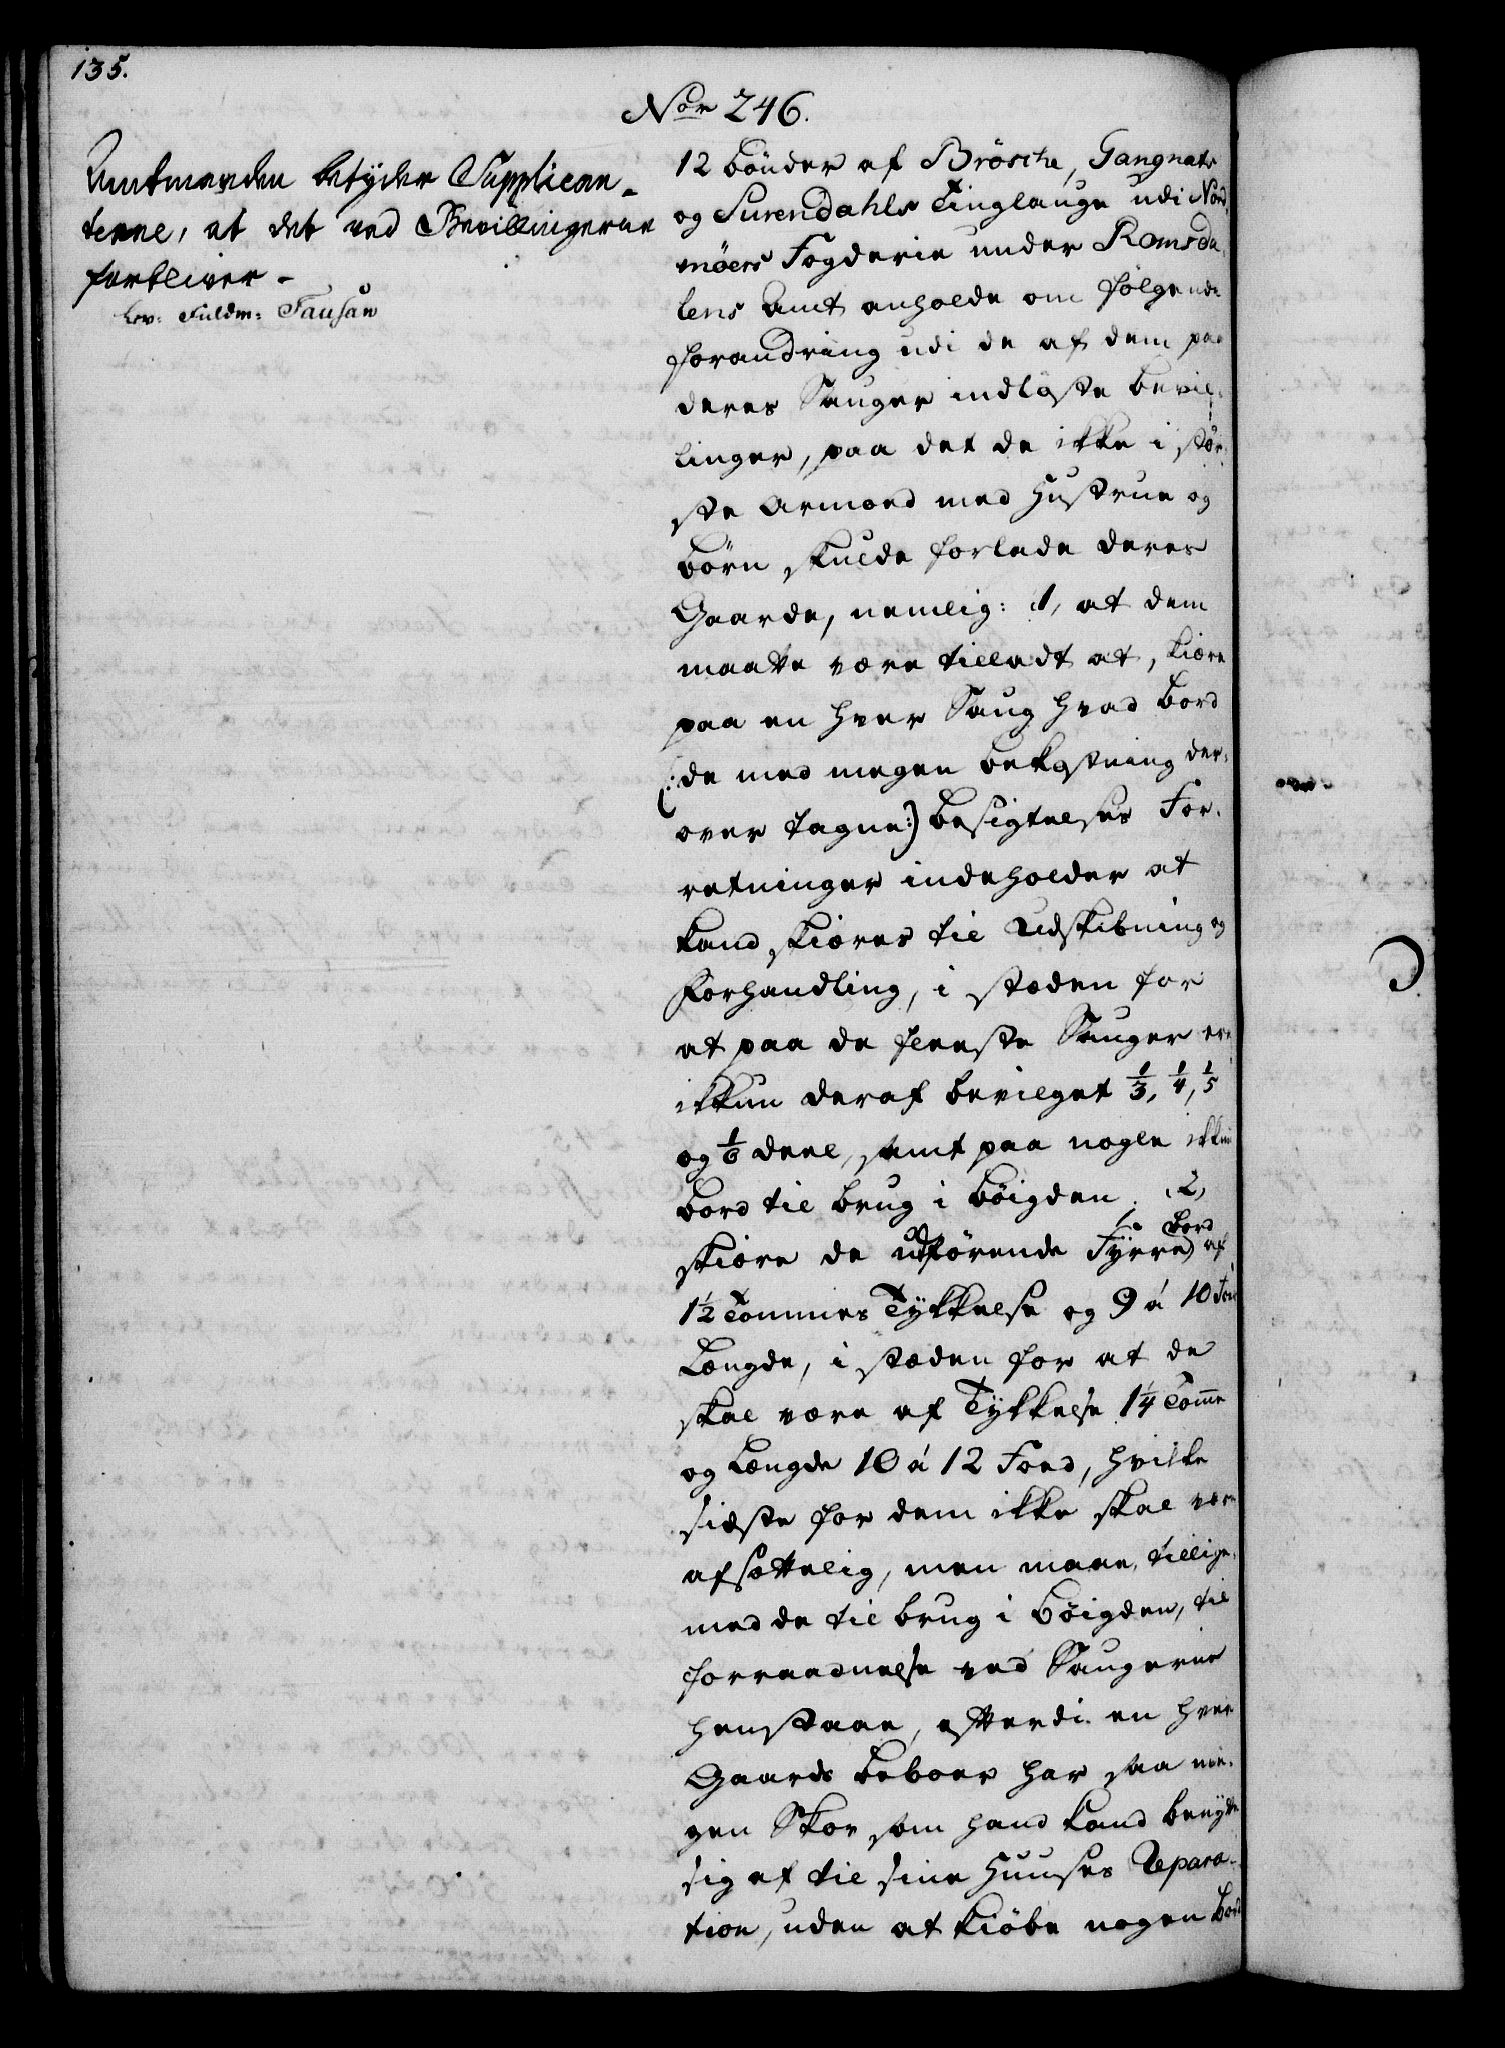 135.
Nor 246.
Amtmanden betyder Supplican-
terne, at det ved Bevillingerne
forbliver -
Lev: Fuldm: Fausan
12 bönder af Brösche, Gangnats
og Surendahls Tinglauge udi Nord-
möers Fogderie under Romsda-
lens Amt anholde om følgende
forandring udi de af dem paa
deres Sauger indløste bevil-
linger, paa det de ikke i stör-
ste Armoed med Hustrue og
Börn skulde forlade deres
Gaarde, nemlig: 1, at dem
maatte være tilladt at, skiære
paa en hver Saug hvad Bord
(: de med megen bekostning der-
over tagne :) Besigtelses For-
retninger indeholder at
kand skiæres til Udskibning og
Forhandling, i stæden for
at paa de fleeste Sauger ere
ikkun deraf bevilget 1/3, 1/4, 1/5
og 1/6 deel, samt paa nogle ikkun
bord til brug i böigden. 2,
skiære de udførende Fyrre Bord af
1½ Tommes Tykkelse og 9 á 10 Fod
Længde, i stæden for at de
skal være af Tykkelse 1¼ Tomme
og Længde 10 á 12 Foed, hvilke
sidste for dem ikke skal være
afsættelig, men maae, tillige-
med de til brug i Böigden, til
forraadnelse ved Saugerne
henstaae, efterdi en hver
Gaards beboer har saa me-
gen Skov som hand kand benytte
sig af til sine Huuses Repara-
tion, uden at kiöbe nogen Bord